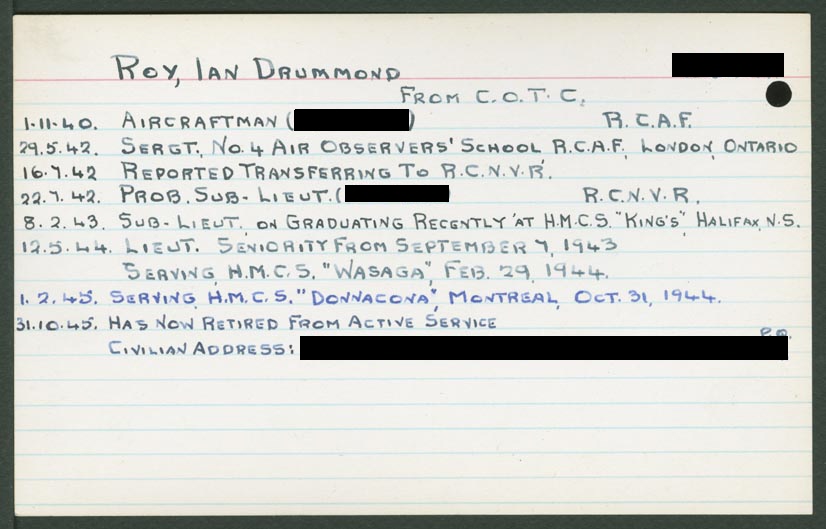 ROY, IAN DRUMMOND
FROM C.O.T.C.
1.11.40. AIRCRAFTMAN ( ) R.C.A.F.
29.5.42. SERGT, NO. 4 AIR OBSERVERS' SCHOOL R.C.A.F., LONDON, ONTARIO
16.7.42 REPORTED TRANSFERRING TO R.C.N.V.R.
22.7.42. PROB. SUB-LIEUT. ( ) R.C.N.V.R.
8.2.43. SUB-LIEUT. ON GRADUATING RECENTLY AT H.M.C.S. "KING'S", HALIFAX, N.S.
12.5.44. LIEUT. SENIORITY FROM SEPTEMBER 7, 1943
SERVING, H.M.C.S. "WASAGA", FEB. 29, 1944.
1.2.45. SERVING, H.M.C.S. "DONNACONA", MONTREAL, OCT. 31, 1944.
31.10.45. HAS NOW RETIRED FROM ACTIVE SERVICE
P.Q.
CIVILIAN ADDRESS: